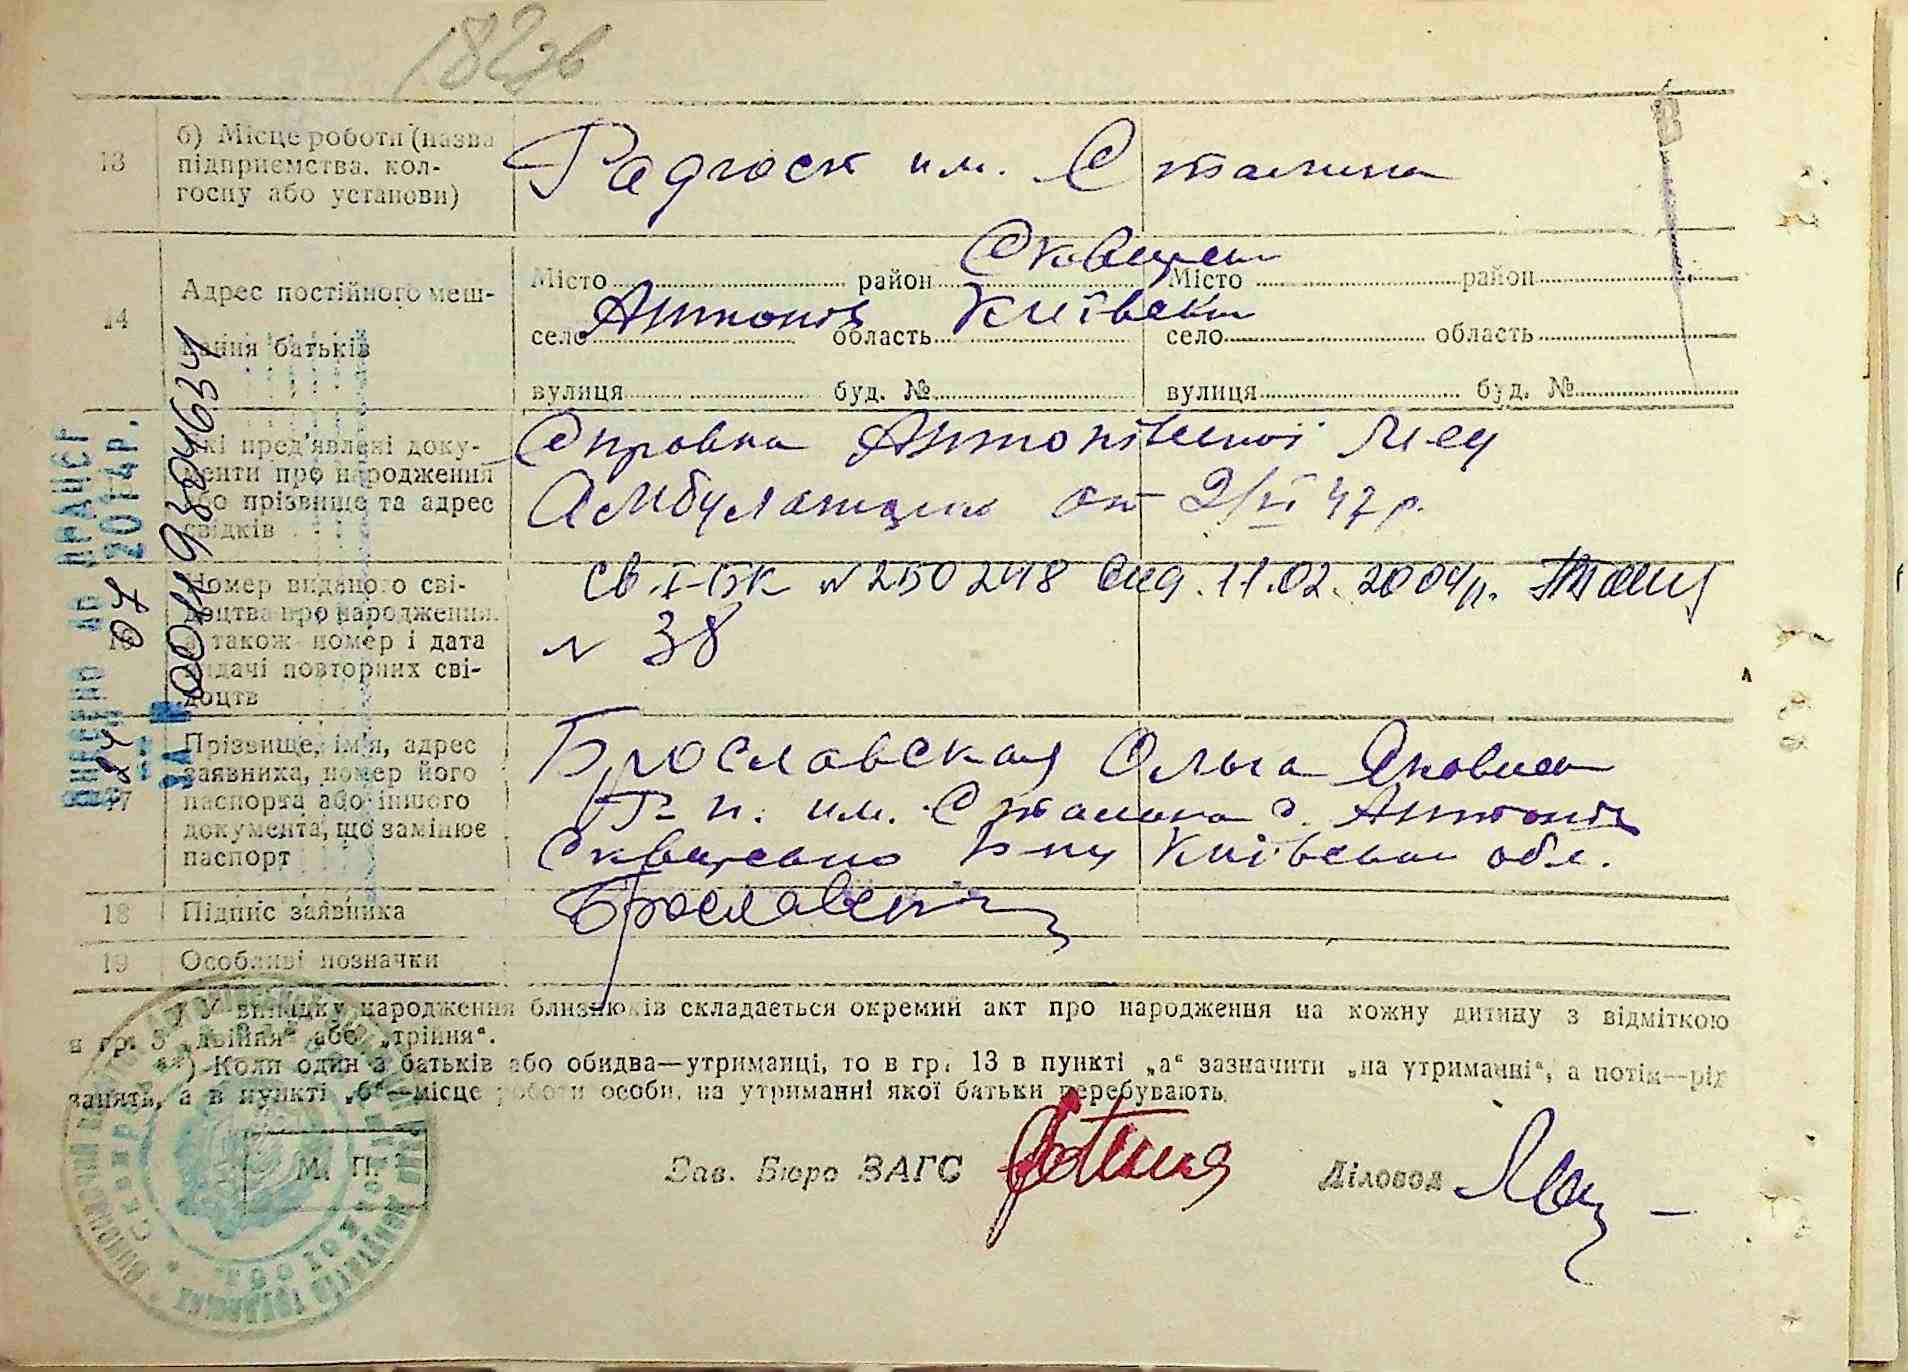 182зв
13 б) Місце роботи (назва підприємства, колгоспу або установи) Радгосп им. Сталина
14 Адрес постійного мешкання батьків
Місто район Сквирськ Місто район
село Антонів область Київськ село область
вулиця буд. № вулиця буд. №
Які пред'явлені документи про народження або прізвище та адрес свідків
Справка Антонівської Мед
Амбулатории от 2/VI 47 р.
Номер виданого свідоцтва про народження, а також номер і дата видачі повторних свідоцтв
св. І-БК №250248 від 11.02.2004р.
№ 38
17 Прізвище, ім'я, адрес заявника, номер його паспорта або іншого документа, що замінює паспорт
Брославская Ольга Яковл
им. Сталина с. Антонів
Сквирського Р-ну Київськ обл.
18 Підпис заявника Брославск
19 Особливі позначки
У випадку народження близнюків складається окремий акт про народження на кожну дитину з відміткою
в гр. 3 „двійня“ або „трійня“.
**) Коли один з батьків або обидва—утриманці, то в гр. 13 в пункті „а“ зазначити „на утриманні“, а потім—рід
занять, а в пункті „б“—місце роботи особи, на утриманні якої батьки перебувають.
М. П.
Зав. Бюро ЗАГС
Діловод
ВНЕСЕНО ДО ДРАЦСГ
24 07 2014р.
ЗА № 00119304634